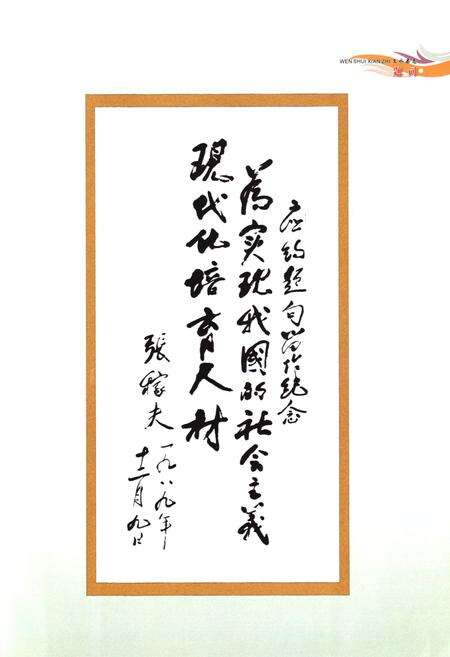 WEN SHUI XIAN ZHI 文水县志
题词
应约题句留作纪念
為实现我國的社会主義
現代化培育人材
張稼夫一九八九年
十二月九日